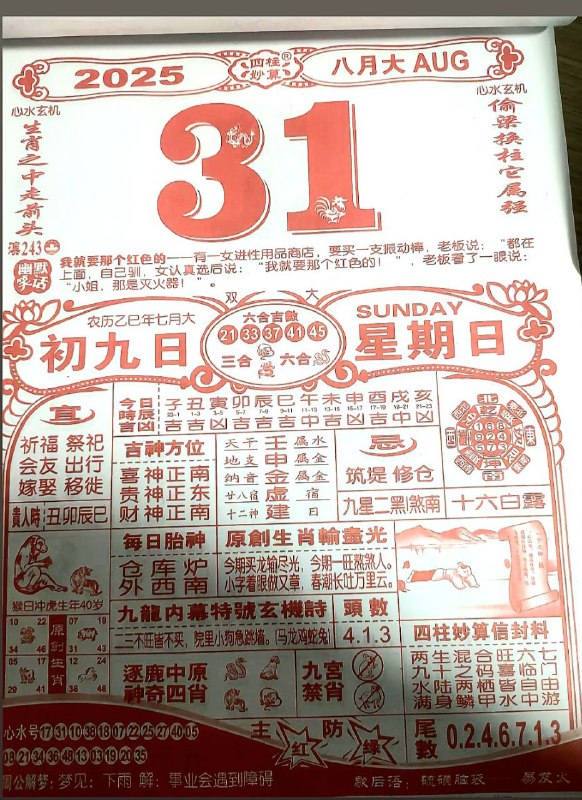 2025
四柱妙算®
八月大 AUG
心水玄机
生肖之中走前头
31
心水玄机
偷梁换柱它属强
243
幽默笑话
我就要那个红色的——有一女进性用品商店，要买一支振动棒，老板说：“都在
上面，自己驯，女认真选后说：“我就要那个红色的！”，老板看了一眼说：
“小姐，那是灭火器！”。
双 大
农历乙巳年七月大
初九日
六合吉數
21 33 37 41 45
三合 六合
SUNDAY
星期日
宜
祈福 祭祀
会友 出行
嫁娶 移徙
貴人時 丑卯辰巳
今日時辰吉凶
子丑寅卯辰巳午未申酉戌亥
23-1 1-3 3-5 5-7 7-9 9-11 11-13 13-15 15-17 17-19 19-21 21-23
吉神方位
喜神正南
贵神正东
财神正南
天干 壬 属水
地支 申 属金
纳音 金 属金
廿八宿 虚 宿
十二神 建 日
忌
筑堤 修仓
九星二黑煞南
十六白露
猴日冲虎生年40岁
每日胎神
仓库炉
外西南
原創生肖輸盡光
今期买龙输尽光，今期一旺煞煞人。
小字着眼做又章，春潮长吐万里云。
九龍内幕特號玄機詩
二三不旺皆不买，院里小狗急跳墙。(马龙鸡蛇兔)
頭數
4.1.3
原創生肖
10 22 34 46
07 19 31 43
05 17 29 41
12 24 36 48
逐鹿中原
神奇四肖
九宮禁肖
四柱妙算信封料
两生混合旺六七
九十之码喜临门
水陆两栖皆自由
满身鳞甲水中游
心水号 17 31 10 38 18 07 22 25 27 40 05
08 21 34 36 48 13 03 19 20 35
主 红
防 绿
尾數
0.2.4.6.7.1.3
周公解梦：梦见：下雨 解：事业会遇到障碍
歇后语：硫磺脑袋——易发火